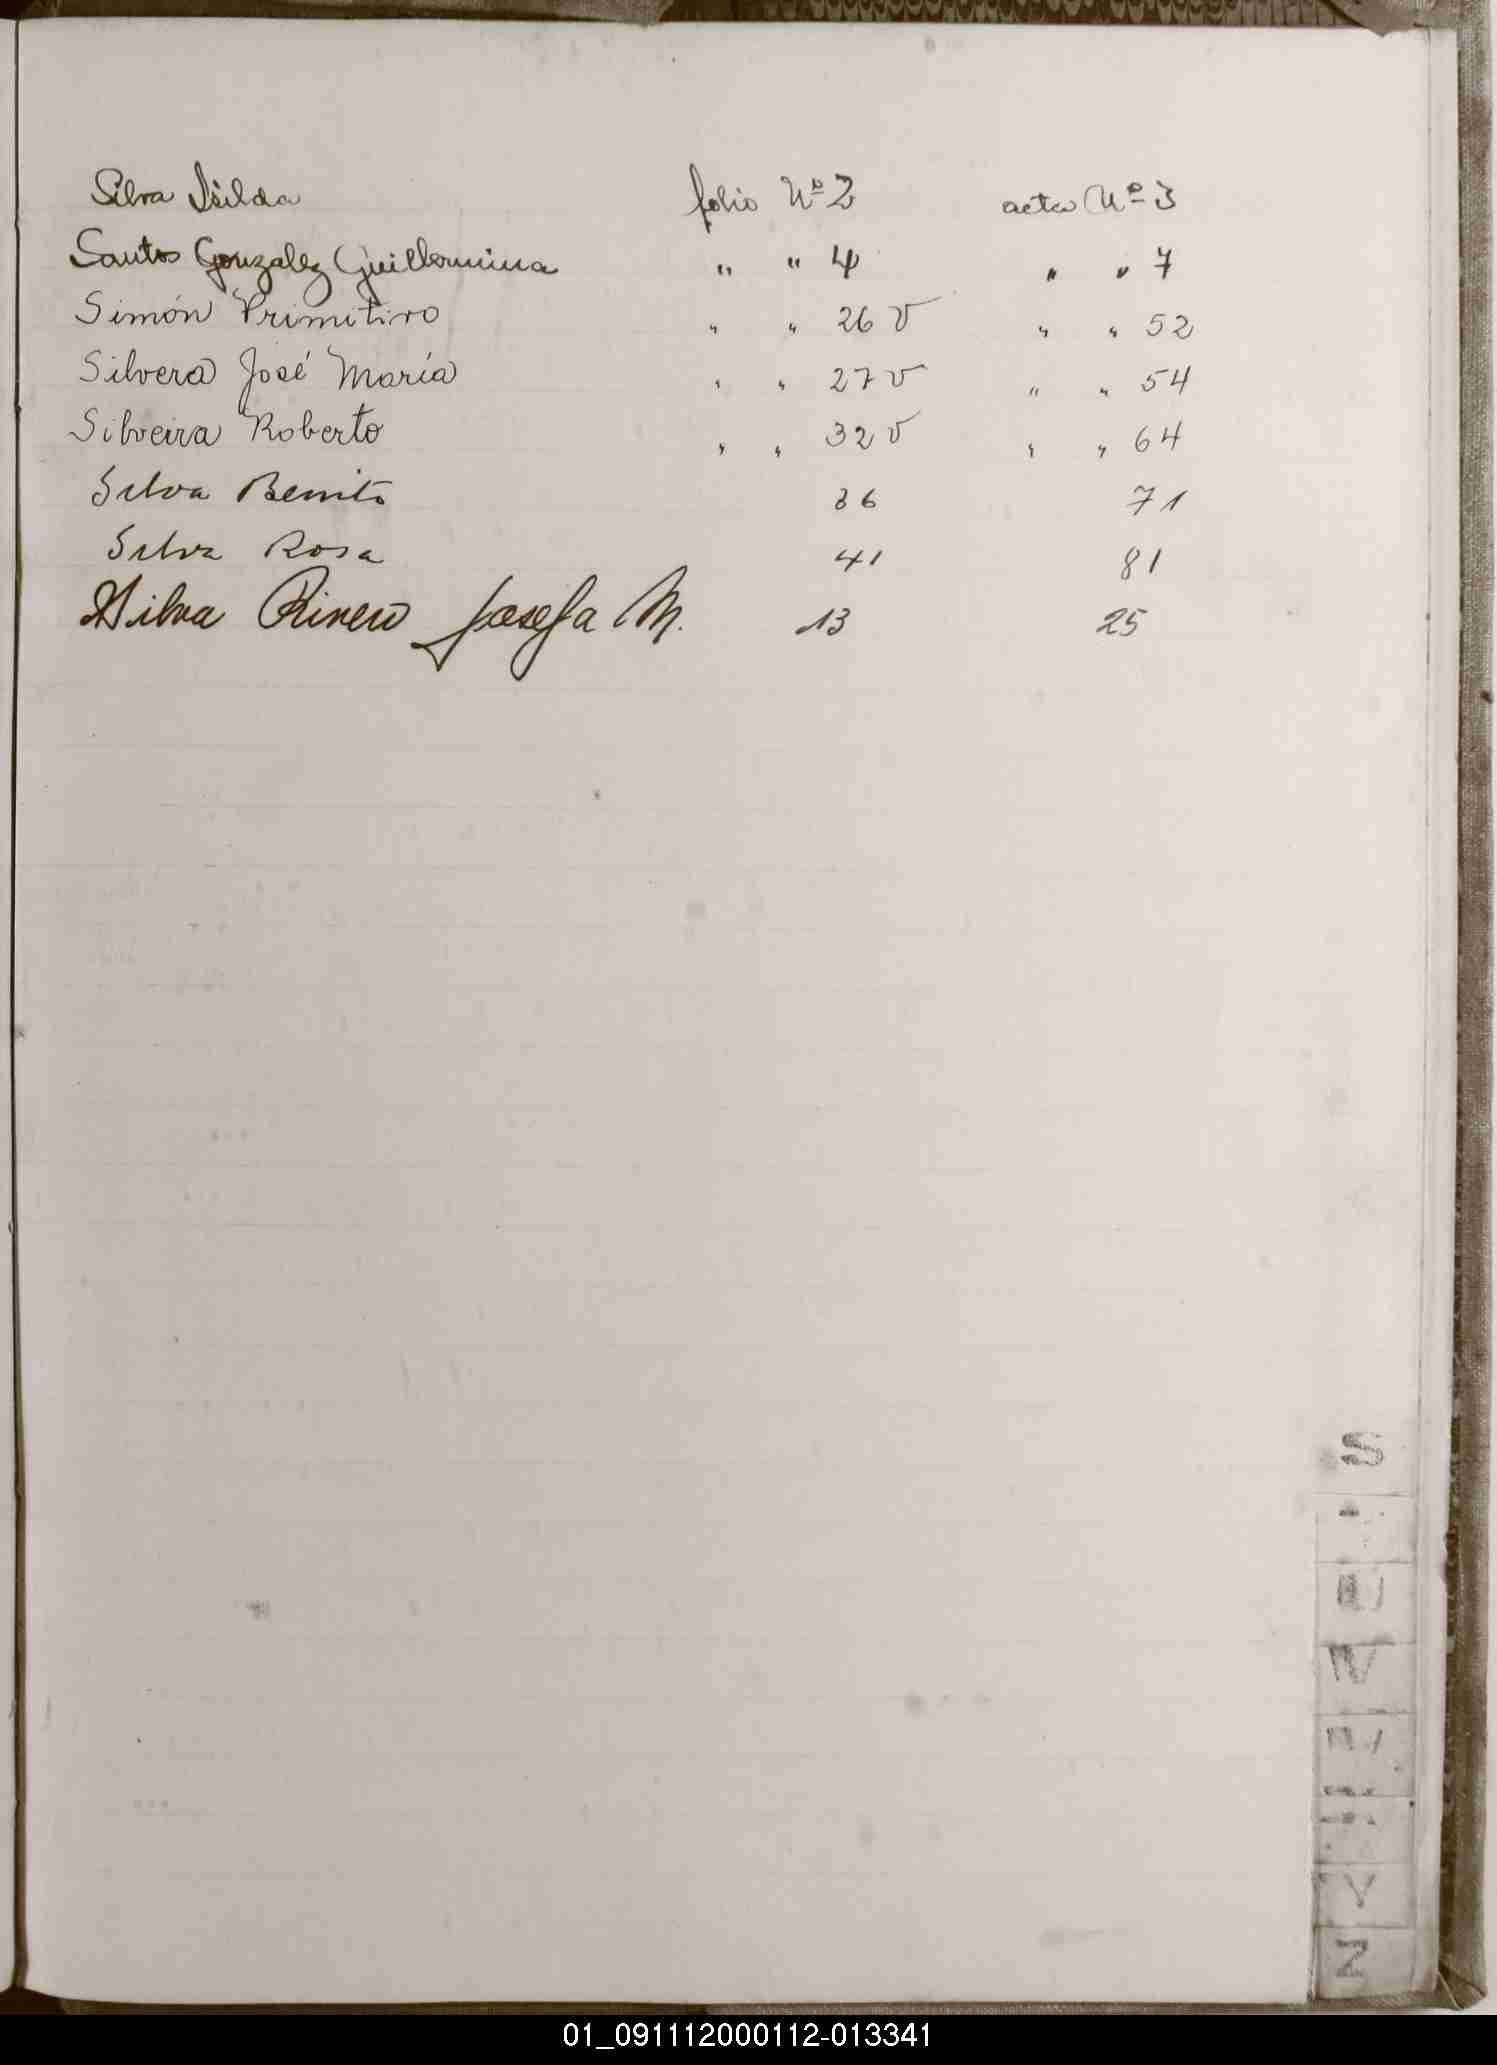 Silva Isilda folio Nº 2 acta Nº 3
Santos Gonzalez Guillermina " " 4 " " 7
Simón Primitivo " " 26 v " " 52
Silvera José María " " 27 v " " 54
Silveira Roberto " " 32 v " " 64
Silva Benito 36 71
Silva Rosa 41 81
Silva Rivero Josefa M. 13 25
S
V
Z
01_091112000112-013341